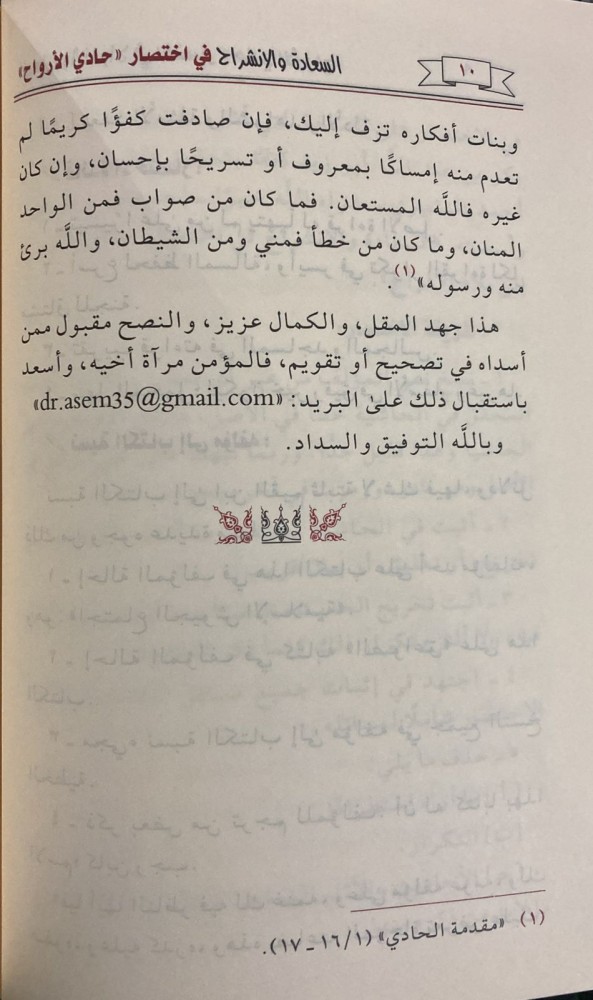 ١٠
السعادة والانشراح في اختصار «حادي الأرواح»
وبنات أفكاره تزف إليك، فإن صادفت كفؤًا كريمًا لم
تعدم منه إمساكًا بمعروف أو تسريحًا بإحسان، وإن كان
غيره فاللَّه المستعان. فما كان من صواب فمن الواحد
المنان، وما كان من خطأ فمني ومن الشيطان، واللَّه برئ
منه ورسوله»(١).
هذا جهد المقل، والكمال عزيز، والنصح مقبول ممن
أسداه في تصحيح أو تقويم، فالمؤمن مرآة أخيه، وأسعد
باستقبال ذلك علىٰ البريد: «dr.asem35@gmail.com»
وباللَّه التوفيق والسداد.
(١) «مقدمة الحادي» (١/ ١٦ - ١٧).